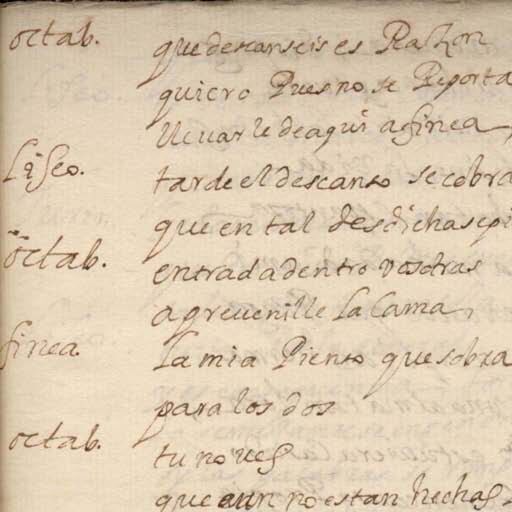 octab. que descanseis es Razon
quiero Pues no se Reporta
lleuarle de aqui a finea,
Liseo. tarde el descanso se cobra
que en tal desdicha se pi
octab. entrad adentro vosotras
a preuenille la cama,
finea. la mia Pienso que sobra
para los dos
octab. tu no ues
que aun no estan hechas